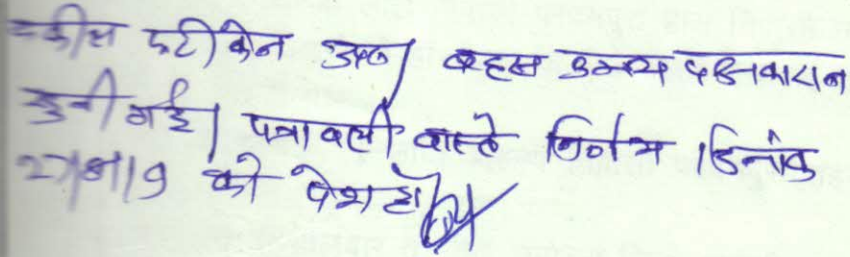 वकील फरीकेन उप०। बहस उभय पक्षकारान
सुनी गई। पत्रावली वास्ते निर्णय दिनांक
को पेश हो।